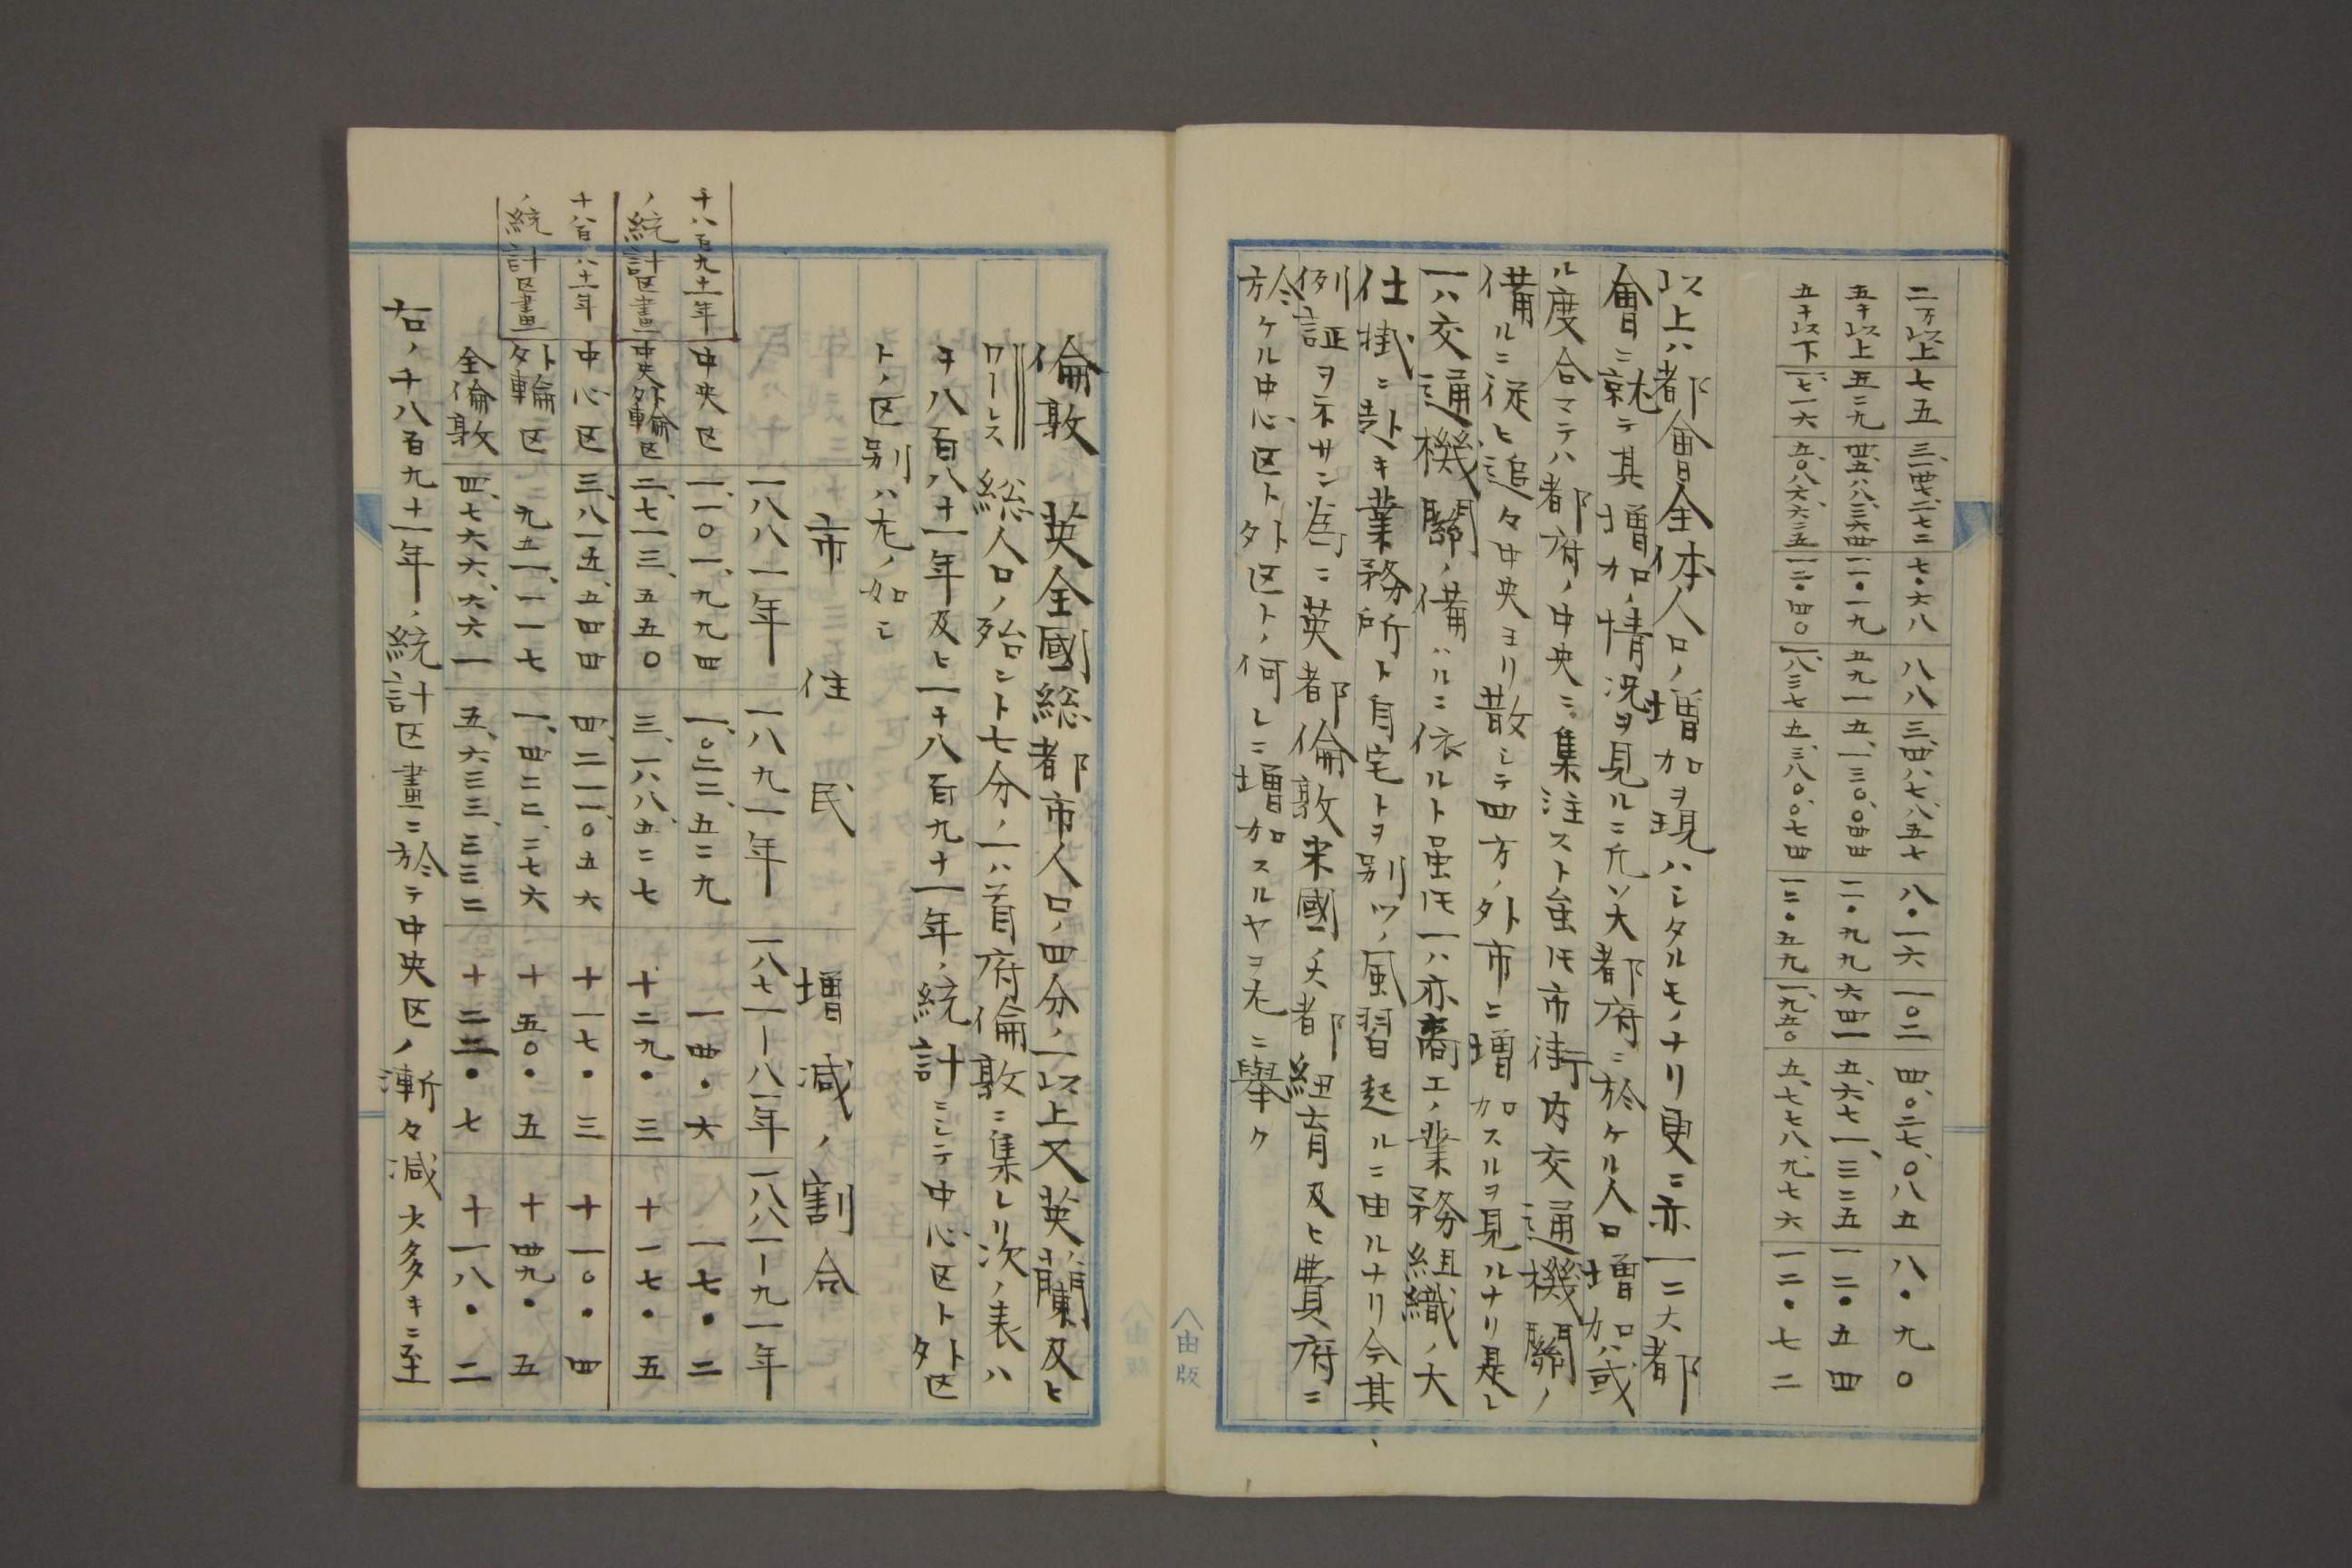 二万以上 七五 三、四七二、七三二 七・六八 八八 三、四八七、八五七 八・一六 一〇二 四、〇二七、〇八五 八・九〇
五千以上 五二九 四、五八八、三六四 一一・一九 五九一 五、一三〇、〇四四 一一・九九 六四一 五、六七一、三三五 一二・五四
五千以下 一、七一六 五、〇八六、六三五 一二・四〇 一、八三七 五、三八〇、〇七四 一二・五九 一、九五〇 五、七七八、九七六 一二・七二
以上ハ都會全体人口ノ増加ヲ現ハシタルモノナリ更ニ亦一二大都
會ニ就テ其増加ノ情況ヲ見ルニ凡ソ大都府ニ於ケル人口増加ハ或
ル度合マテハ都府ノ中央ニ集注スト雖𪜈市街内交通機關ノ
備ルニ從ヒ追々中央ヨリ散シテ四方ノ外市ニ増加スルヲ見ルナリ是レ
一ハ交通機關ノ備ハルニ依ルト虽𪜈一ハ亦商工ノ業務組織ノ大
仕掛ニ赴キ業務所ト自宅トヲ別ツノ風習起ルニ由ルナリ今其
例証ヲ示サン為ニ英都倫敦米國ノ大都紐育及ヒ費府ニ
於ケル中心区ト外区トノ何レニ増加スルヤヲ左ニ舉ク
倫敦 英全國総都市人口ノ四分ノ一以上又英蘭及ヒ
ウーレス総人口ノ殆ント七分ノ一ハ首府倫敦ニ集レリ次ノ表ハ
千八百八十一年及ヒ一千八百九十一年ノ統計ニシテ中心区ト外区
トノ区別ハ左ノ如シ
市住民 増減ノ割合
一八八一年 一八九一年 一八七一ー八一年 一八八一ー九一年
千八百九十一年 中央区 一、一〇一、九九四 一、〇二二、五二九 一四・六 一七・二
ノ統計区畫 中央外輪区 二、七一三、五五〇 三、一八八、五二七 十二九・三 十一七・五
千八百八十一年 中心区 三、八一五、五四四 四、二一一、〇五六 十一七・三 十一〇・四
ノ統計区畫 外輪区 九五一、一一七 一、四二二、二七六 十五〇・五 十四九・五
全倫敦 四、七六六、六六一 五、六三三、三三二 十二二・七 十一八・二
右ノ千八百九十一年ノ統計区畫ニ於テ中央区ノ漸々減少多キニ至